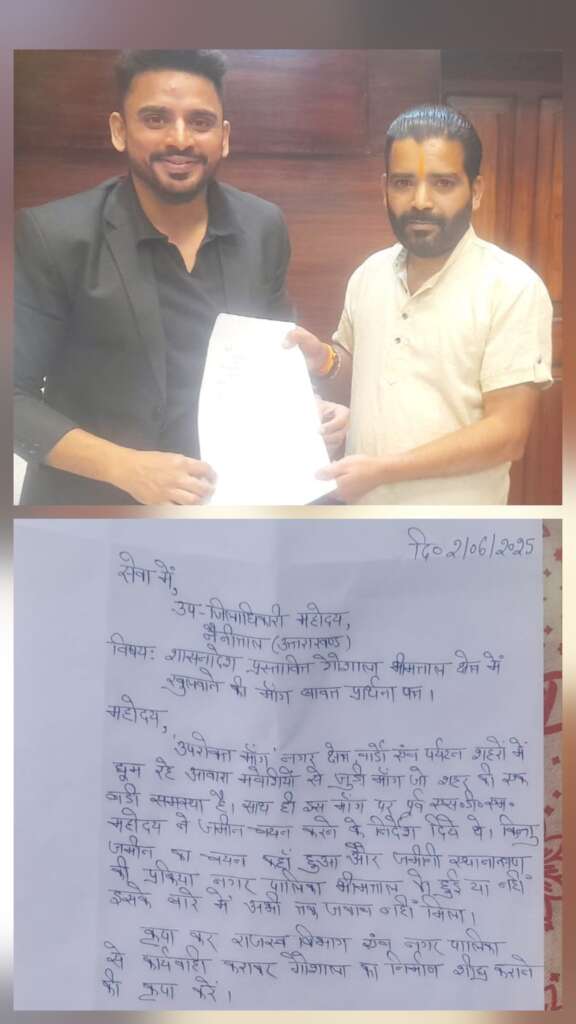 दि० 2/06/2025
सेवा में,
उप-जिलाधिकारी महोदय,
नैनीताल (उत्तराखण्ड)
विषय: शासनादेश प्रस्तावित गौशाला भीमताल क्षेत्र में
खुलवाने की माँग बावत प्रार्थना पत्र।
महोदय,
उपरोक्त माँग नगर क्षेत्र, वार्डो एंव पर्यटन शहरों में
घूम रहे आवारा मवेशियों से जुड़ी माँग जो शहर की एक
बडी समस्या है। साथ ही इस माँग पर पूर्व एस.डी.एम.
महोदय ने जमीन चयन करने के निर्देश दिये थे। किन्तु
जमीन का चयन कहाँ हुआ और जमीनी स्थानान्तरण
की प्रक्रिया नगर पालिका भीमताल को हुई या नहीं
इसके बारे में अभी तक जवाब नहीं मिला।
कृपा कर राजस्व विभाग एंव नगर पालिका
से कार्यवाही कराकर गौशाला का निर्माण शीघ्र कराने
की कृपा करें।